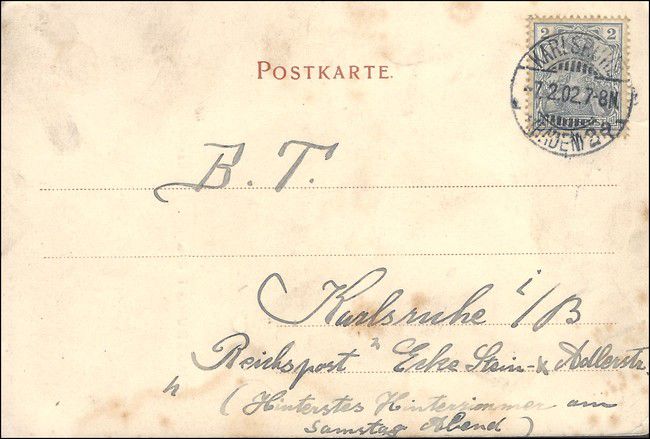 2 2
POSTKARTE.
KARLSRUHE
7.2.02.7-8N.
(BADEN) 2
B. T.
Karlsruhe i/B
Reichspost " Ecke Stein- & Adlerstr.
"
(Hinterstes Hinterzimmer am
Samstag Abend)